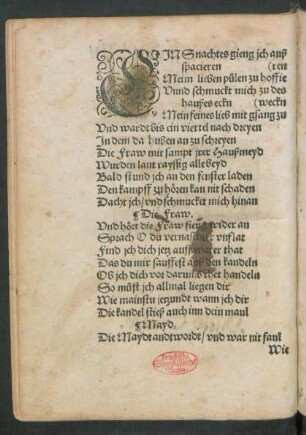 EINs nachtes gieng jch auß
spacieren (ren
Meim lieben půlen zu hoffie
Vnnd schmuckt mich zu des
haußes eckn (weckn
Mein feines lieb mit gsang zu
Vnd wardt bis ein viertel nach dreyen
In dem da hußen an zu schreyen
Die Fraw mit sampt jrer Haußmeyd
Wurden laut rayssig alle beyd
Bald stund jch an den fenster laden
Den kampff zu hören kan nit schaden
Dacht jch / vnd schmucket mich hinan
¶ Die Fraw.
Vnd hört die Fraw fieng wider an
Sprach O du vernaschter vnflat
Find jch dich jetz auff warer that
Das du mir sauffest auß den kandeln
Ob jch dich vor darumb thet handeln
So můst jch allmal liegen dir
Wie mainstu jetzundt wann jch dir
Die kandel stieß auch inn dein maul
¶ Mayd.
Die Maydt andtwordt / vnd war nit faul
Wie